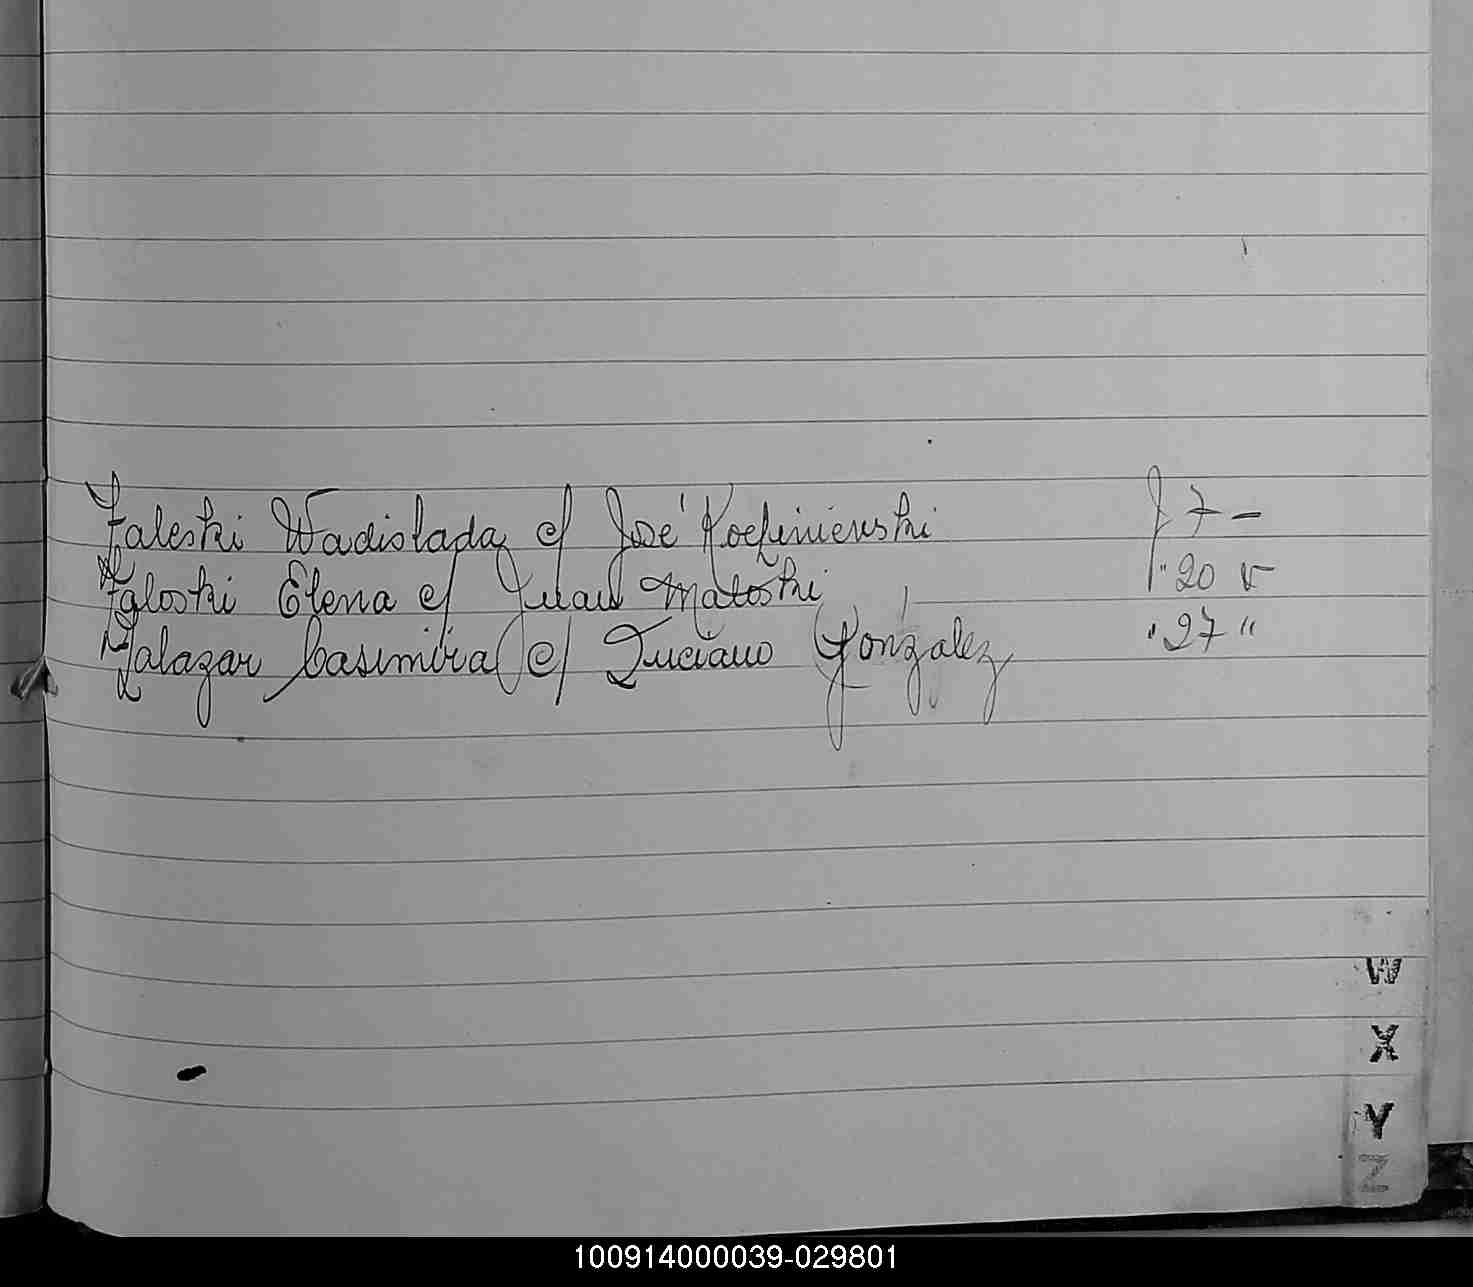 Zaleski Wadislada c/ José Koefinienski f 7 –
Zaloski Elena c/ Julau Matoski " 20 v
Zalazar Casimira c/ Luciano González " 27 "
W
X
Y
Z
100914000039-029801